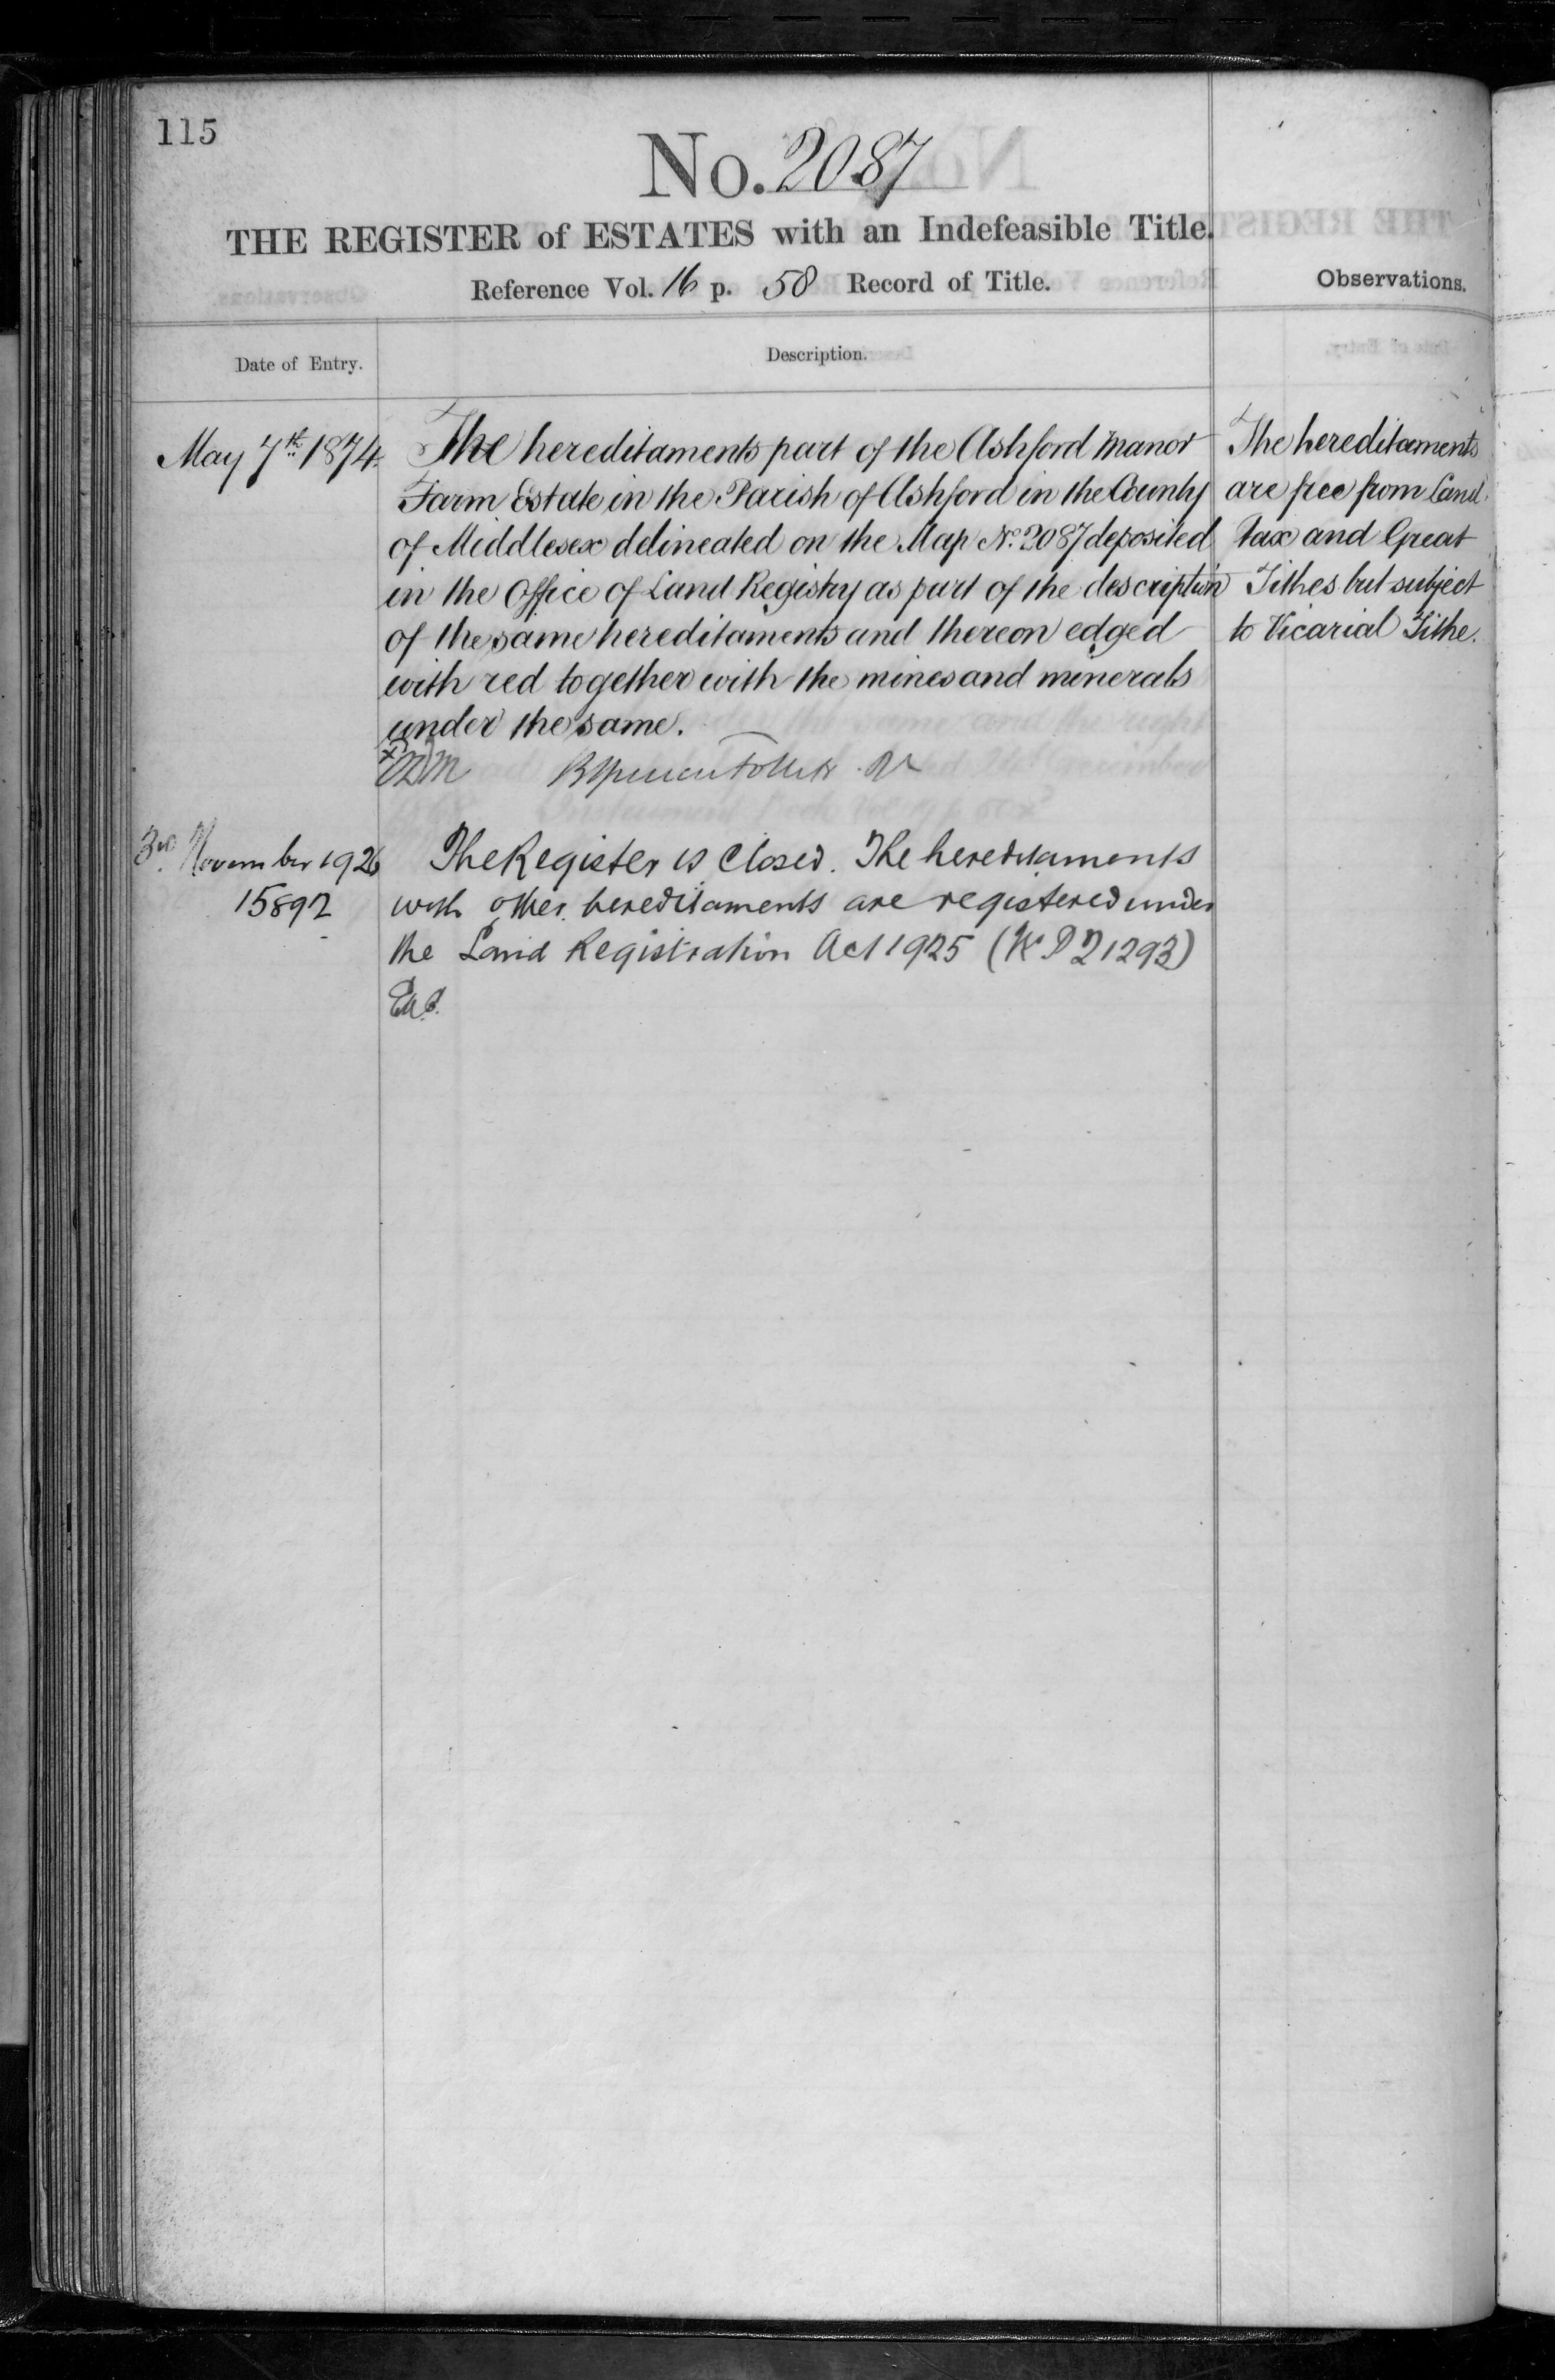 115
No. 2087
THE REGISTER of ESTATES with an Indefeasible Title.
Reference Vol. 16 p. 58 Record of Title.
Observations.
Date of Entry.
Description.
May 7th 1874.
The hereditaments part of the Ashford Manor
Farm Estate in the Parish of Ashford in the County
of Middlesex delineated on the Map No. 2087 deposited
in the Office of Land Registry as part of the description
of the same hereditaments and thereon edged
with red together with the mines and minerals
under the same.
The hereditaments
are free from Land
Tax and Great
Tithes but subject
to Vicarial Tithe.
3rd November 1926
15892
The Register is Closed. The hereditaments
with other hereditaments are registered under
the Land Registration Act 1925 (